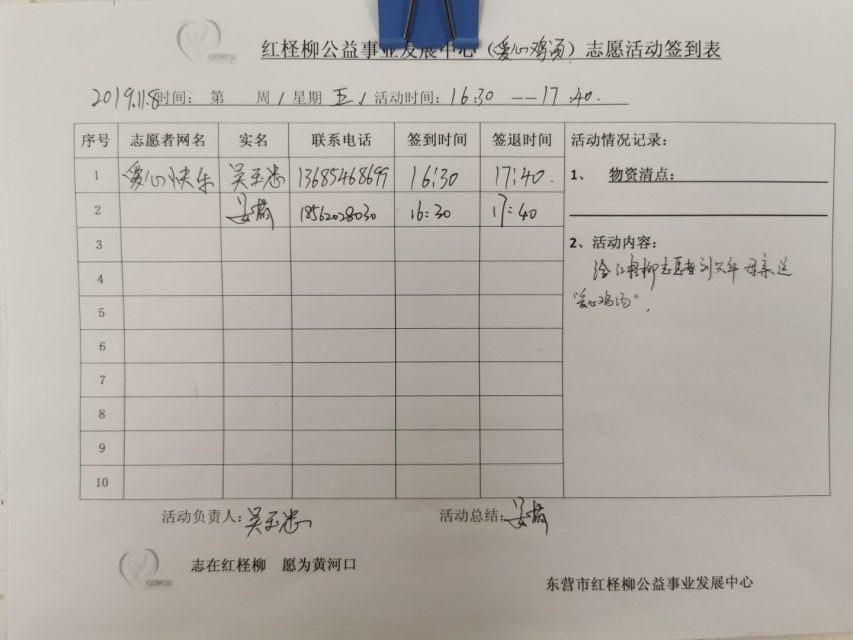 红柽柳公益事业发展中心(爱心鸡汤)志愿活动签到表
2019.11.8时间: 第 周/星期 五 / 活动时间:16:30 —17:40.
序号 志愿者网名 实名 联系电话 签到时间 签退时间 活动情况记录:
1 爱心快乐 吴玉忠 13685468699 16:30 17:40. 1、 物资清点:
2 18562028030 16:30 17:40
3 2、活动内容:
给红柽柳志愿者刘 母亲送
4
"爱心鸡汤".
5
6
7
8
9
10
活动负责人:吴玉忠 活动总结:
志在红柽柳 愿为黄河口
东营市红柽柳公益事业发展中心